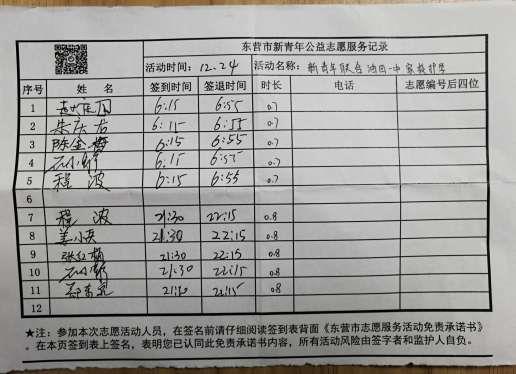 东营市新青年公益志愿服务记录
活动时间：12.24 活动名称：新青年联合油田一中
序号 姓 名 签到时间 签退时间 时长 电话 志愿编号后四位
1 6:15 6:55 0.7
2 6:15 6:55 0.7
3 6:15 6:55 0.7
4 6:15 6:55 0.7
5 程 波 6:15 6:55 0.7
6
7 程 波 21:30 22:15 0.8
8 姜小英 21:30 22:15 0.8
9 21:30 22:15 0.8
10 21:30 22:15 0.8
11 22:15 0.8
12
★注：参加本次志愿活动人员，在签名前请仔细阅读签到表背面《东营市志愿服务活动免责承诺书》
。在本页签到表上签名，表明您已认同此免责承诺书内容，所有活动风险由签字者和监护人自负。